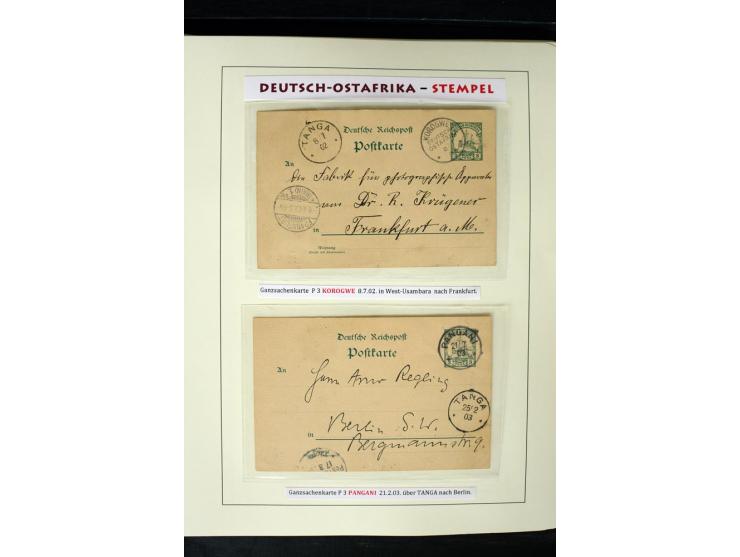 DEUTSCH-OSTAFRIKA – STEMPEL
TANGA
8/7
02
Deutsche Reichspost
Postkarte
KOROGWE
An
die Fabrik für photographische Apparate
von Dr. R. Krügener
in Frankfurt a. M.
Ganzsachenkarte P 3 KOROGWE 8.7.02. in West-Usambara nach Frankfurt.
Deutsche Reichspost
Postkarte
PANGANI
21/2
03
An
Herrn Arno Regling
TANGA
25/2
03
Berlin S.W.
in Bergmannstr 9.
Ganzsachenkarte P 3 PANGANI 21.2.03. über TANGA nach Berlin.